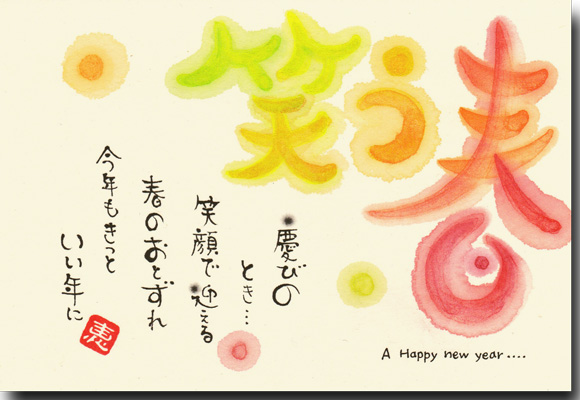 春
笑う
慶びの
とき…
笑顔で迎える
春のおとずれ
今年もきっと
いい年に
恵
A Happy new year....